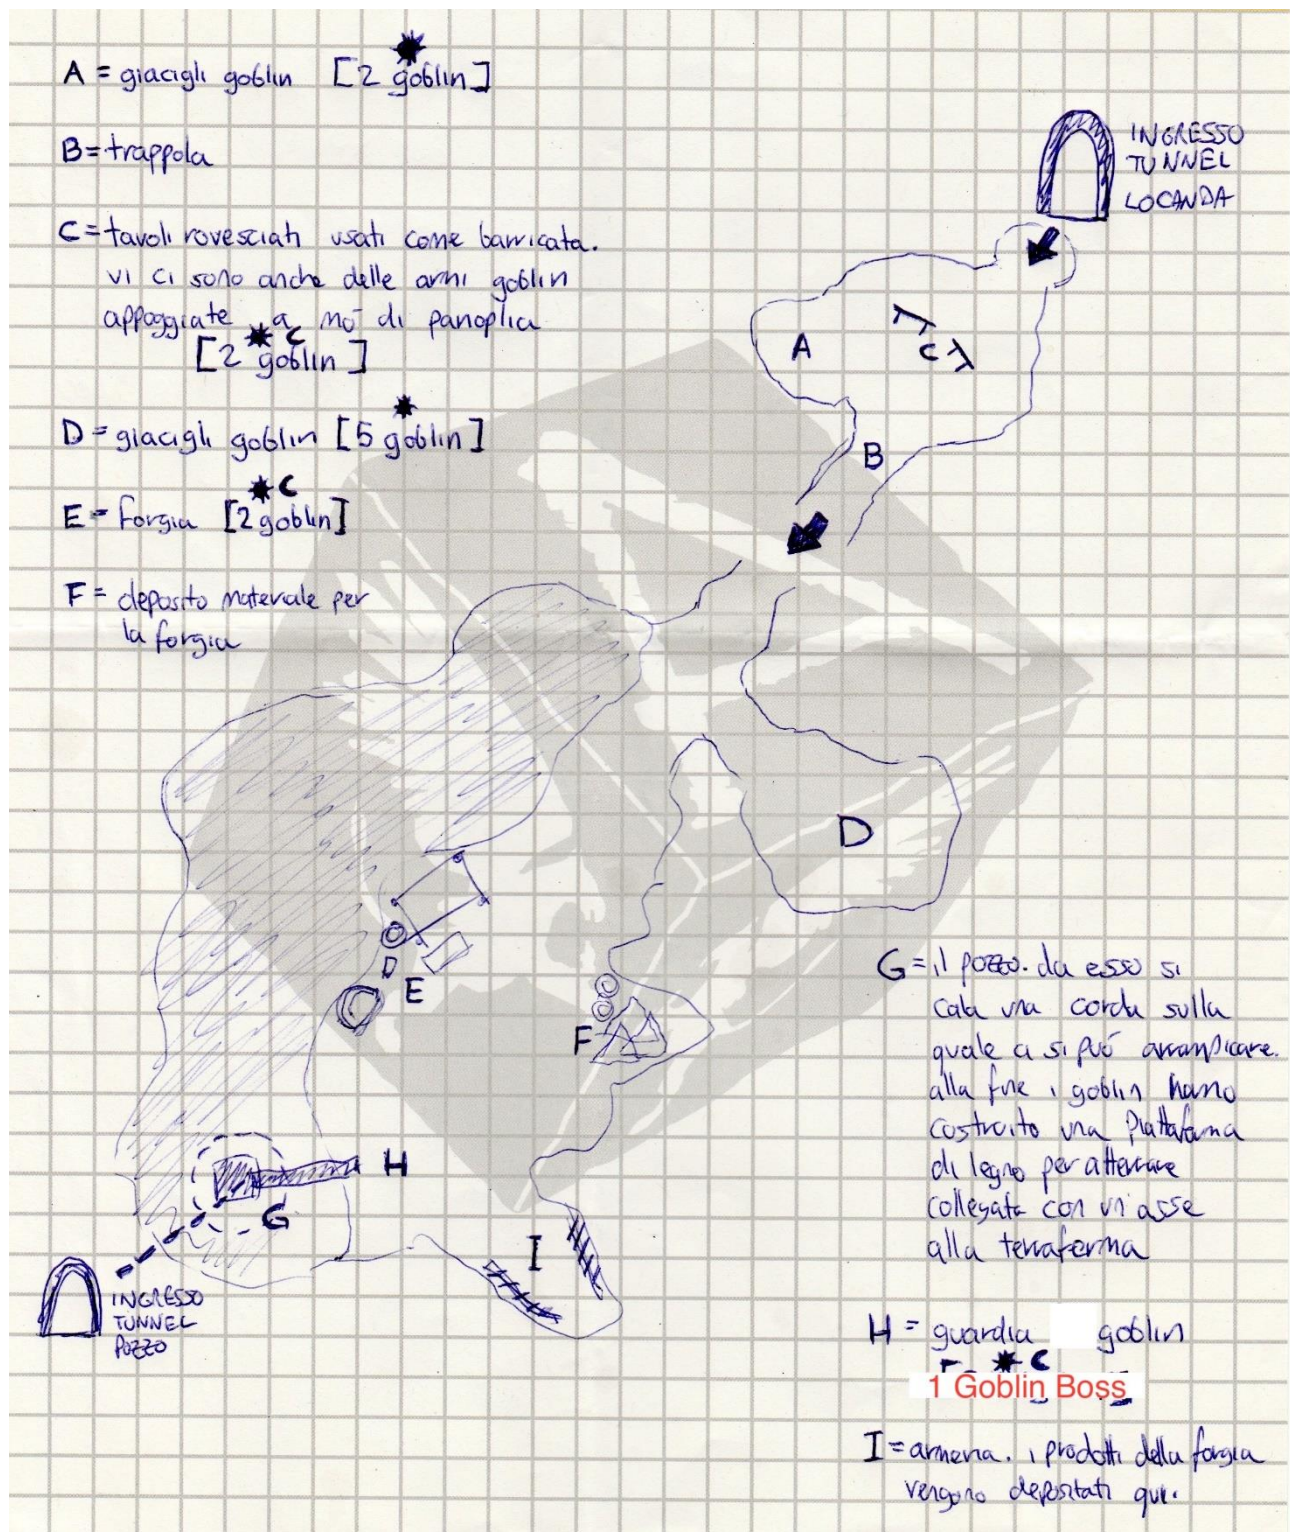 A = giacigli goblin [2 goblin]
B = trappola
C = tavoli rovesciati usati come barricata.
vi ci sono anche delle armi goblin
appoggiate a mó di panoplia
[2 goblin]
D = giacigli goblin [5 goblin]
E = forgia [2 goblin]
F = deposito materiale per
la forgia
INGRESSO
TUNNEL
LOCANDA
A
C
B
D
E
F
H
G
I
INGRESSO
TUNNEL
POZZO
G = il pozzo. da esso si
cala una corda sulla
quale ci si puó arrampicare.
alla fine i goblin hanno
costruito una piattaforma
di legno per atterrare
collegata con un'asse
alla terraferma
H = guardia goblin
1 Goblin Boss
I = armeria. i prodotti della forgia
vengono depositati qui.